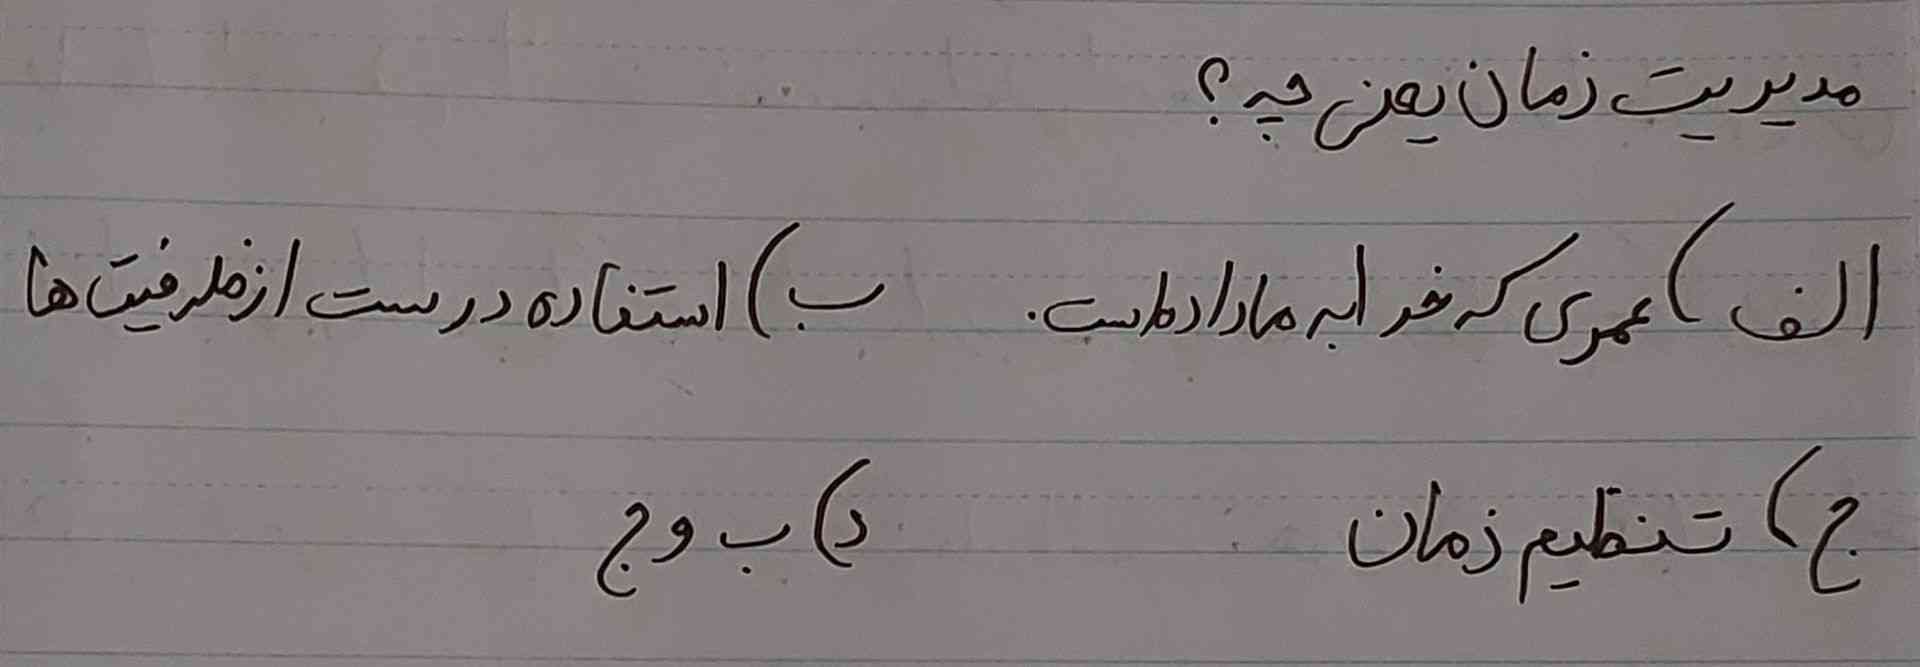 مدیریت زمان یعنی چه؟
الف) عمری که خدا به ما داده است. ب) استفاده درست از ظرفیت ها
ج) تنظیم زمان د) ب و ج